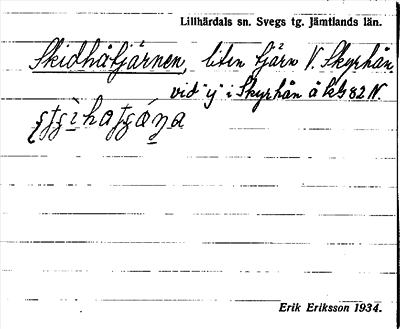 Lillhärdals sn. Svegs tg. Jämtlands län.
Skidhåtjärnen, liten tjärn V. Skyrhån,
vid "y" i Skyrhån å kbl 82 N.
Erik Eriksson 1934.